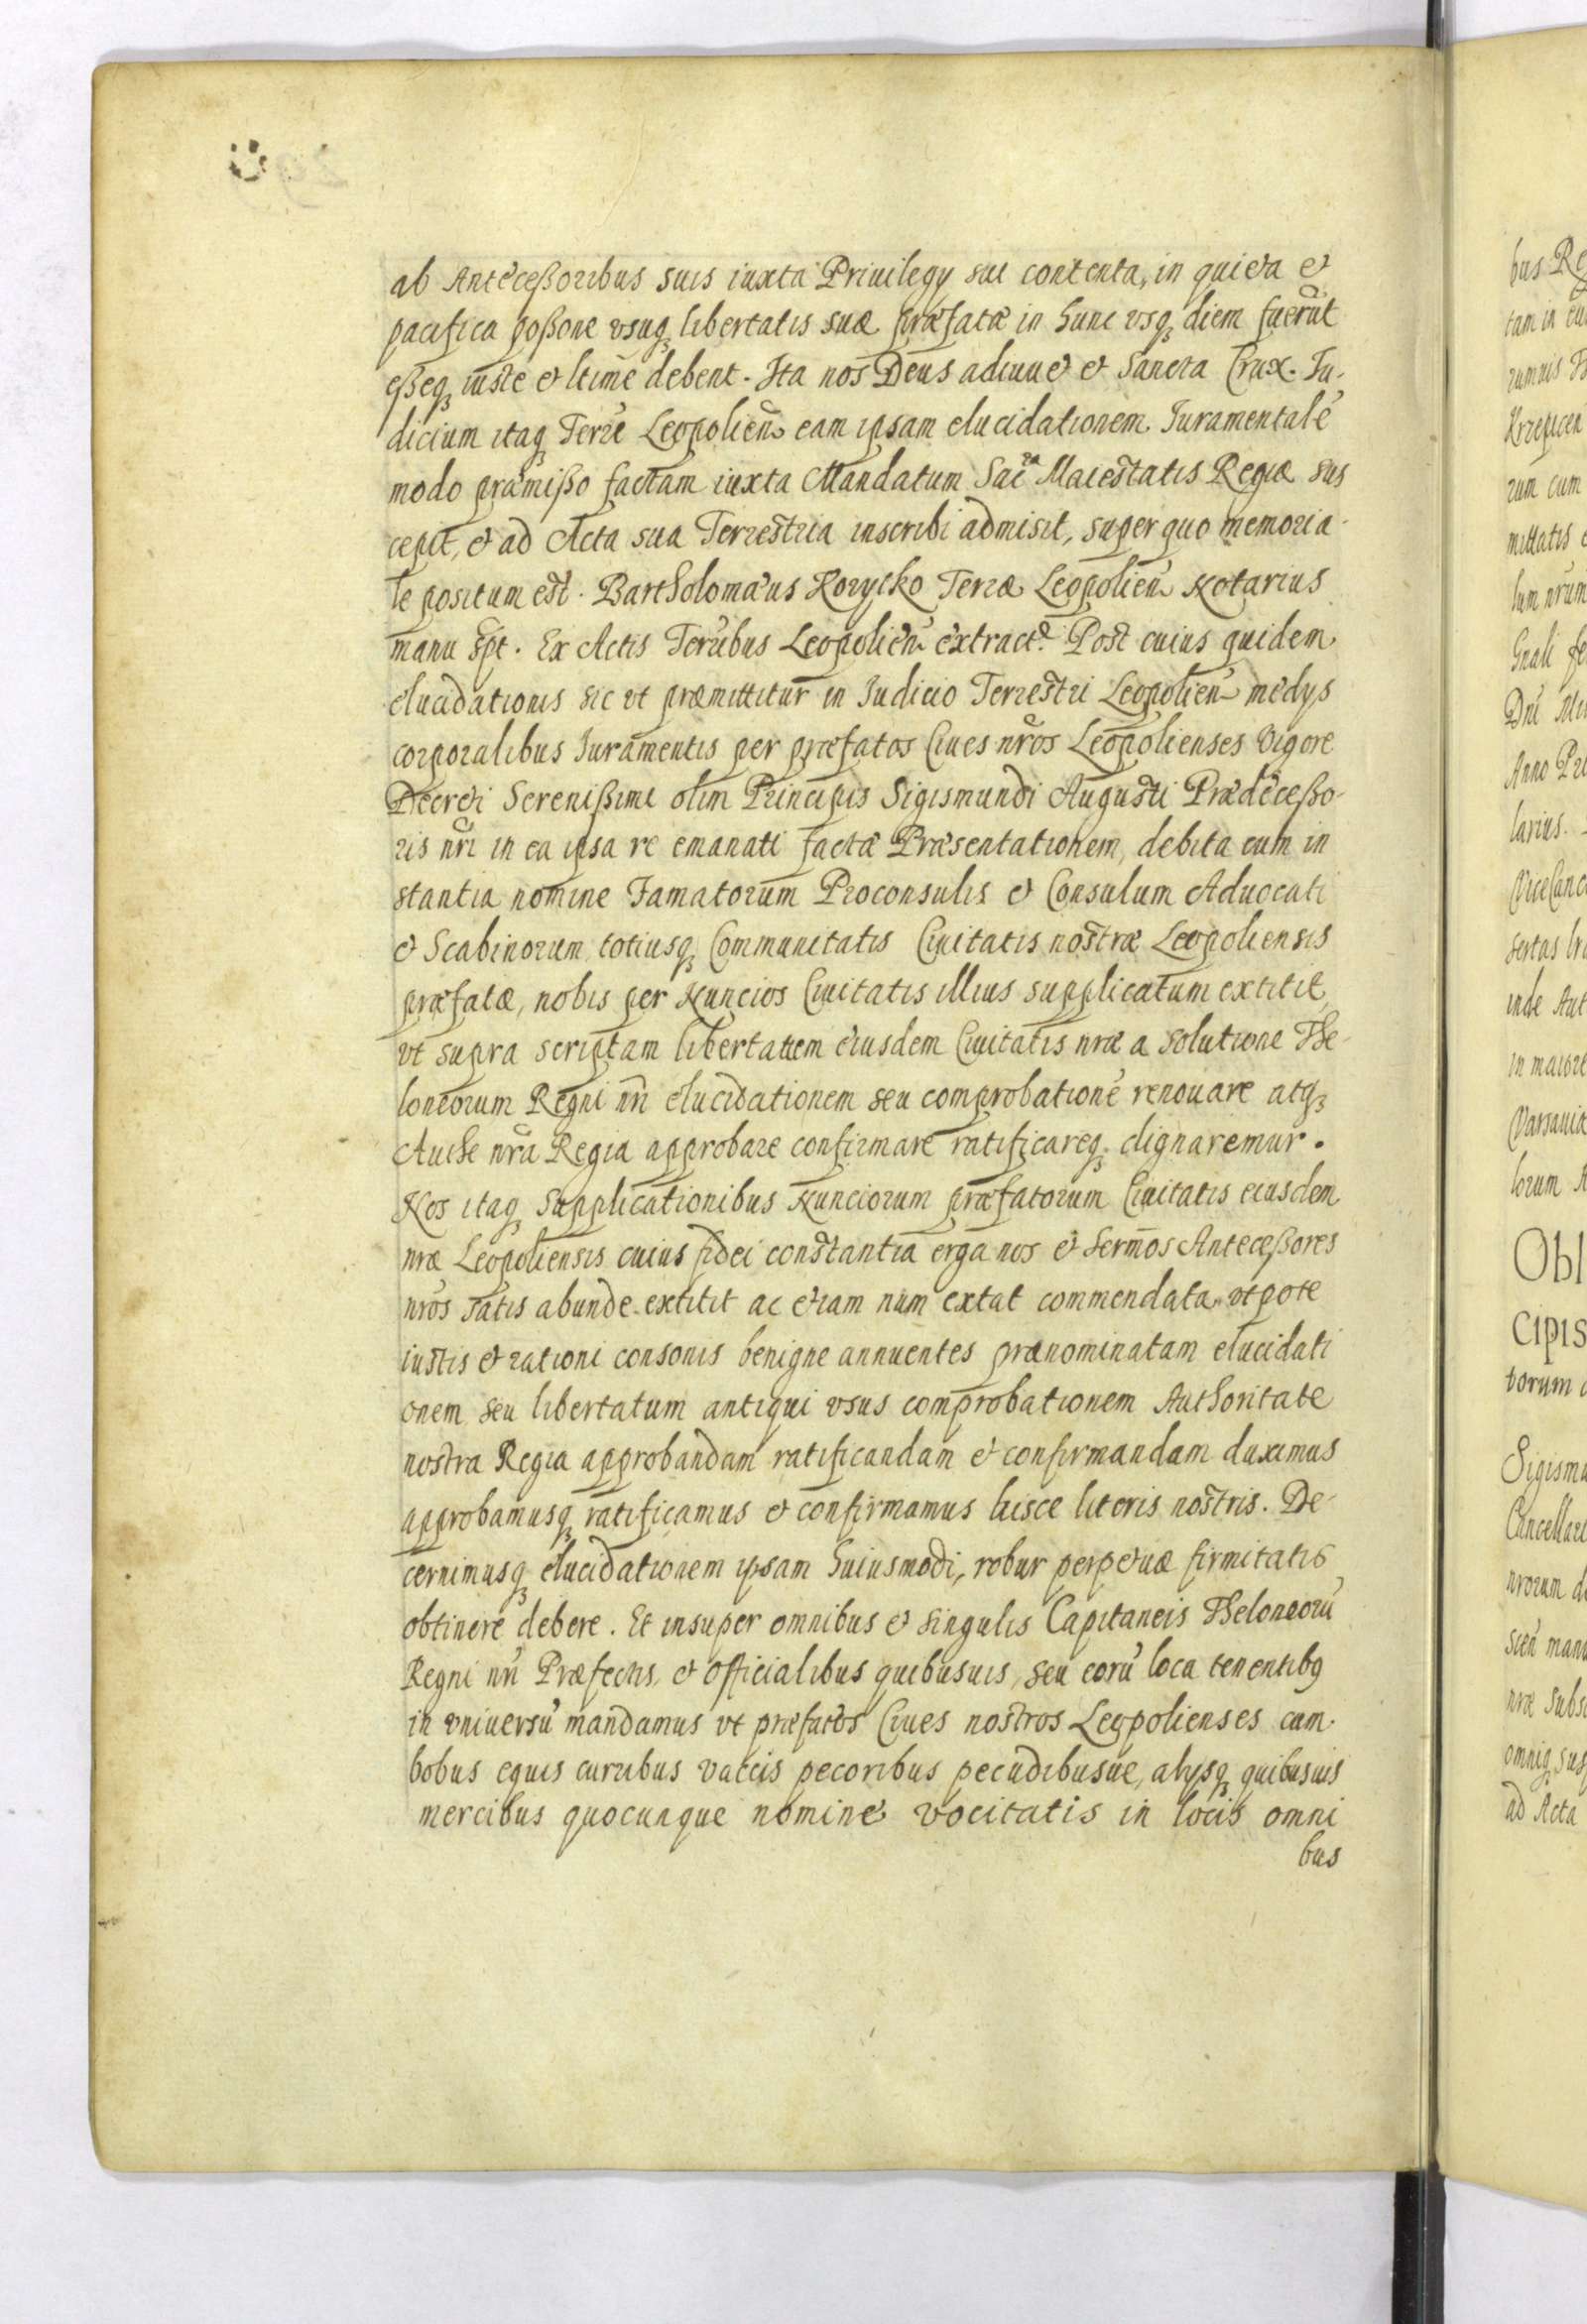 ab Anteceßoribus suis iuxta Priuilegy sui contenta, in quieta et
pacifica poßone vsuq libertatis suæ præfatæ in hunc vsq diem fuerūt
eßeq iuste et ltime debent. Ita nos Deus adiuuet et Sancta Crux. Iu-
dicium itaq Terre Leopolien eam ipsam elucidationem Iuramentale
modo præmißo factam iuxta Mandatum Sac Maiestatis Regiæ sus
cepit, et ad Acta sua Terrestria inscribi admisit, super quo memoria-
le positum est. Bartholomæus Korycko Terræ Leopolien Notarius
manu spt. Ex Actis Terribus Leopolien extract. Post cuius quidem
elucidationis sic vt præmittitur in Iudicio Terrestri Leopolien medys
corporalibus Iuramentis per præfatos Ciues nros Leopolienses Vigore
Decreti Sereniẞimi olim Principis Sigismundi Augusti Prædeceßo-
ris nri in ea ipsa re emanati factæ Præsentationem, debita cum in
stantia nomine Famatorum Proconsulis et Consulum Aduocati
et Scabinorum totiusq Communitatis Ciuitatis nostræ Leopoliensis
præfatæ, nobis per Nuncios Ciuitatis illius supplicatum extitit,
vt supra scriptam libertatem eiusdem Ciuitatis nræ a solutione The-
loneorum Regni nri elucidationem seu comprobatione renouare atq
Authe nra Regia approbare confirmare ratificareq dignaremur.
Nos itaq Supplicationibus Nunciorum præfatorum Ciuitatis eiusdem
nræ Leopoliensis cuius fidei constantia erga nos et Sermos Anteceßores
nros satis abunde extitit ac etiam num extat commendata, vtpote
iustis et rationi consonis benigne annuentes prænominatam elucidati
onem seu libertatum antiqui vsus comprobationem Authoritate
nostra Regia approbandam ratificandam et confirmandam duximus
approbamusq ratificamus et confirmamus hisce literis nostris. De-
cernimusq elucidationem ipsam huiusmodi, robur perpetuæ firmitatis
obtinere debere. Et insuper omnibus et singulis Capitaneis Theloneorū
Regni nri Præfectis, et Officialibus quibusuis, seu eorū loca tenentibq
in vniuersū mandamus vt præfatos Ciues nostros Leopolienses cum
bobus equis currubus vaccis pecoribus pecudibusue, alysq quibusuis
mercibus quocunque nomine vocitatis in locis omni
bus